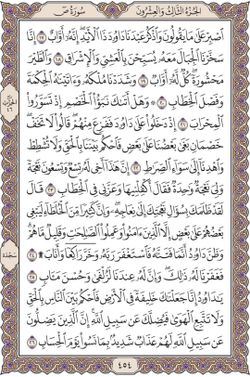 الجُزءُ الثَّالِثُ وَالعِشْرُونَ
سُورَةُ صٓ
ٱصۡبِرۡ عَلَىٰ مَا يَقُولُونَ وَٱذۡكُرۡ عَبۡدَنَا دَاوُۥدَ ذَا ٱلۡأَيۡدِۖ إِنَّهُۥٓ أَوَّابٌ ١٧ إِنَّا
سَخَّرۡنَا ٱلۡجِبَالَ مَعَهُۥ يُسَبِّحۡنَ بِٱلۡعَشِيِّ وَٱلۡإِشۡرَاقِ ١٨ وَٱلطَّيۡرَ
مَحۡشُورَةٗۖ كُلّٞ لَّهُۥٓ أَوَّابٞ ١٩ وَشَدَدۡنَا مُلۡكَهُۥ وَءَاتَيۡنَٰهُ ٱلۡحِكۡمَةَ
وَفَصۡلَ ٱلۡخِطَابِ ٢٠ ۞ وَهَلۡ أَتَىٰكَ نَبَؤُاْ ٱلۡخَصۡمِ إِذۡ تَسَوَّرُواْ
ٱلۡمِحۡرَابَ ٢١ إِذۡ دَخَلُواْ عَلَىٰ دَاوُۥدَ فَفَزِعَ مِنۡهُمۡۖ قَالُواْ لَا تَخَفۡۖ
خَصۡمَانِ بَغَىٰ بَعۡضُنَا عَلَىٰ بَعۡضٖ فَٱحۡكُم بَيۡنَنَا بِٱلۡحَقِّ وَلَا تُشۡطِطۡ
وَٱهۡدِنَآ إِلَىٰ سَوَآءِ ٱلصِّرَٰطِ ٢٢ إِنَّ هَٰذَآ أَخِي لَهُۥ تِسۡعٞ وَتِسۡعُونَ نَعۡجَةٗ
وَلِيَ نَعۡجَةٞ وَٰحِدَةٞ فَقَالَ أَكۡفِلۡنِيهَا وَعَزَّنِي فِي ٱلۡخِطَابِ ٢٣ قَالَ
لَقَدۡ ظَلَمَكَ بِسُؤَالِ نَعۡجَتِكَ إِلَىٰ نِعَاجِهِۦۖ وَإِنَّ كَثِيرٗا مِّنَ ٱلۡخُلَطَآءِ لَيَبۡغِي
بَعۡضُهُمۡ عَلَىٰ بَعۡضٍ إِلَّا ٱلَّذِينَ ءَامَنُواْ وَعَمِلُواْ ٱلصَّٰلِحَٰتِ وَقَلِيلٞ مَّا هُمۡۗ
وَظَنَّ دَاوُۥدُ أَنَّمَا فَتَنَّٰهُ فَٱسۡتَغۡفَرَ رَبَّهُۥ وَخَرَّۤ رَاكِعٗاۤ وَأَنَابَ۩ ٢٤
فَغَفَرۡنَا لَهُۥ ذَٰلِكَۖ وَإِنَّ لَهُۥ عِندَنَا لَزُلۡفَىٰ وَحُسۡنَ مَـَٔابٖ ٢٥
يَٰدَاوُۥدُ إِنَّا جَعَلۡنَٰكَ خَلِيفَةٗ فِي ٱلۡأَرۡضِ فَٱحۡكُم بَيۡنَ ٱلنَّاسِ بِٱلۡحَقِّ
وَلَا تَتَّبِعِ ٱلۡهَوَىٰ فَيُضِلَّكَ عَن سَبِيلِ ٱللَّهِۚ إِنَّ ٱلَّذِينَ يَضِلُّونَ
عَن سَبِيلِ ٱللَّهِ لَهُمۡ عَذَابٞ شَدِيدُۢ بِمَا نَسُواْ يَوۡمَ ٱلۡحِسَابِ ٢٦
سجدة
٤٥٤